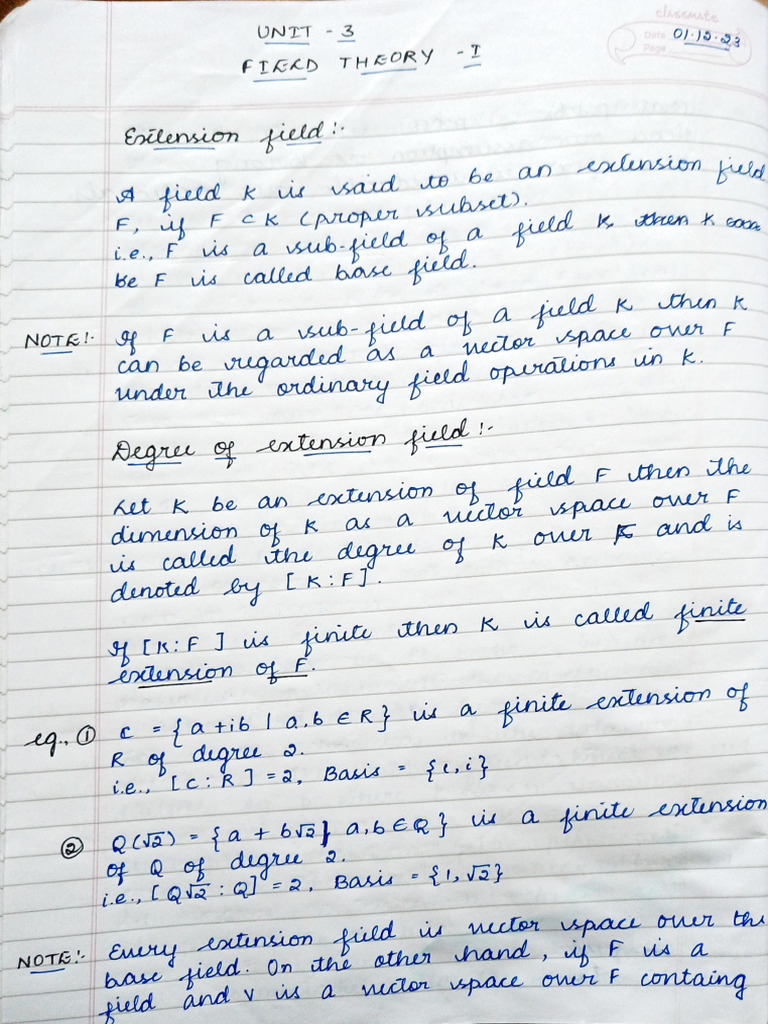 classmate
Date 01.12.23
Page
UNIT - 3
FIELD THEORY - I
Extension field :-
A field K is said to be an extension field
F, if F ⊂ K (proper subset).
i.e., F is a sub-field of a field K, then K
be F is called base field.
NOTE :- If F is a sub-field of a field K then K
can be regarded as a vector space over F
under the ordinary field operations in K.
Degree of extension field :-
Let K be an extension of field F then the
dimension of K as a vector space over F
is called the degree of K over F and is
denoted by [K:F].
If [K:F] is finite then K is called finite
extension of F.
eg., ① C = {a+ib | a,b ∈ R} is a finite extension of
R of degree 2.
i.e., [C:R] = 2, Basis = {1,i}
② Q(√2) = {a + b√2 | a,b ∈ Q} is a finite extension
of Q of degree 2.
i.e., [Q√2 : Q] = 2, Basis = {1,√2}
NOTE :- Every extension field is vector space over the
base field. On the other hand, if F is a
field and V is a vector space over F containg